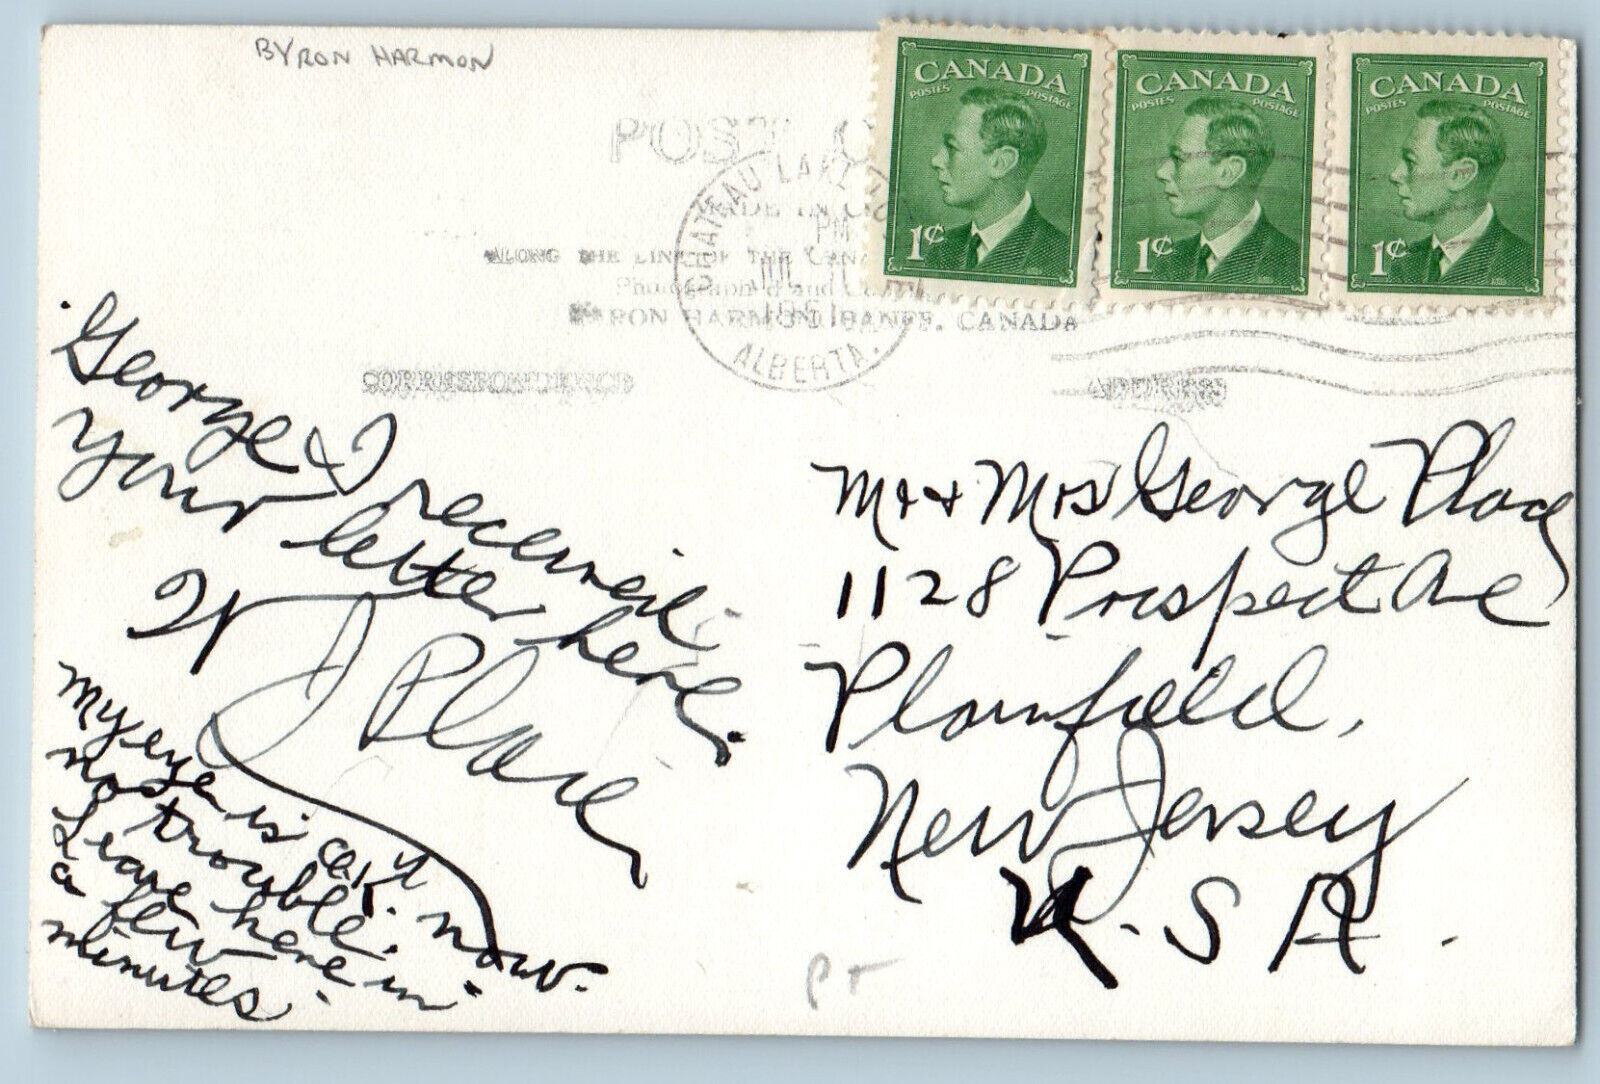 BYRON HARMON
CANADA
POSTES POSTAGE
1¢
CANADA
POSTES POSTAGE
1¢
CANADA
POSTES POSTAGE
1¢
POST
CHATEAU LAKE
MADE IN
PM
JUL
1951
ALBERTA.
ALONG THE LINE OF THE CANA
Photographed and
BYRON HARMON, BANFF, CANADA
CORRESPONDENCE
ADDRESS
George & I received
your letter here.
W J Place
My eye is O.K. now.
no trouble.
Leave here in
a few
minutes.
Mr + Mrs George Place
1128 Prospect Ave
Plainfield,
New Jersey
U.S.A.